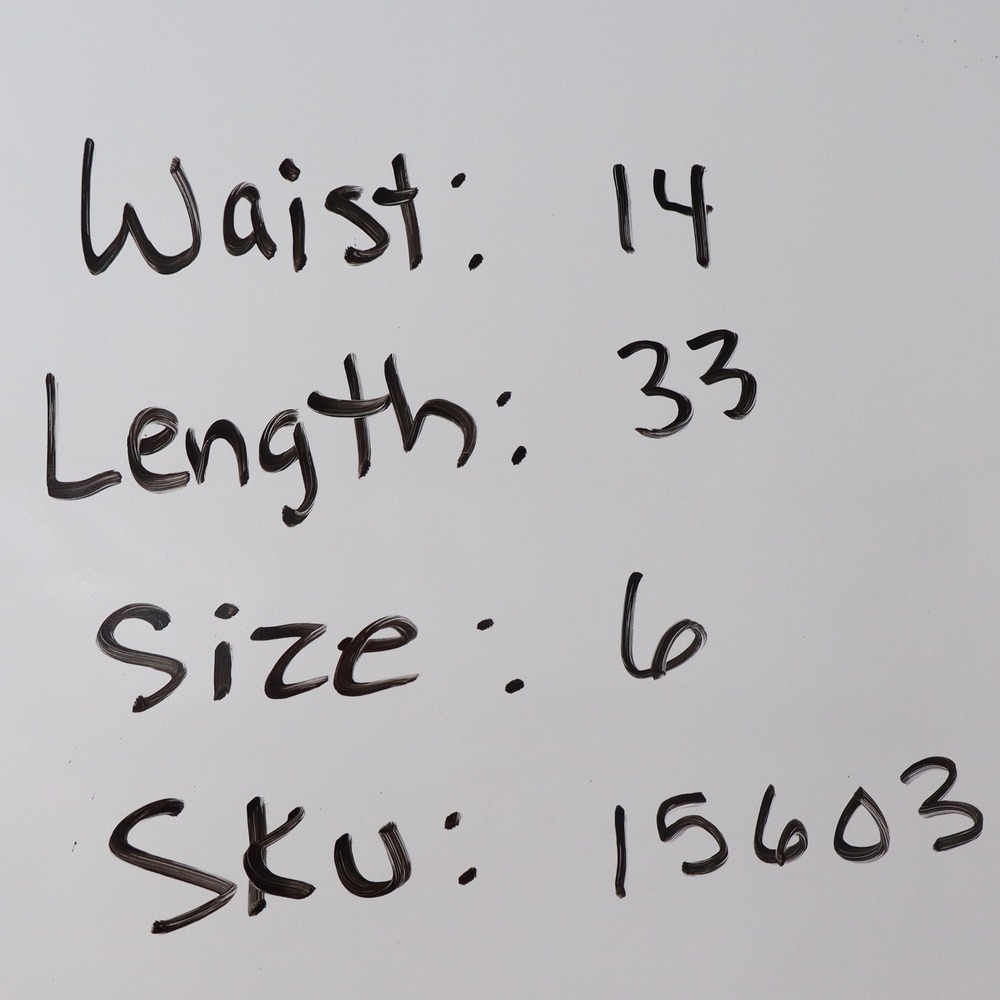 Waist: 14
Length: 33
Size: 6
Sku: 15603